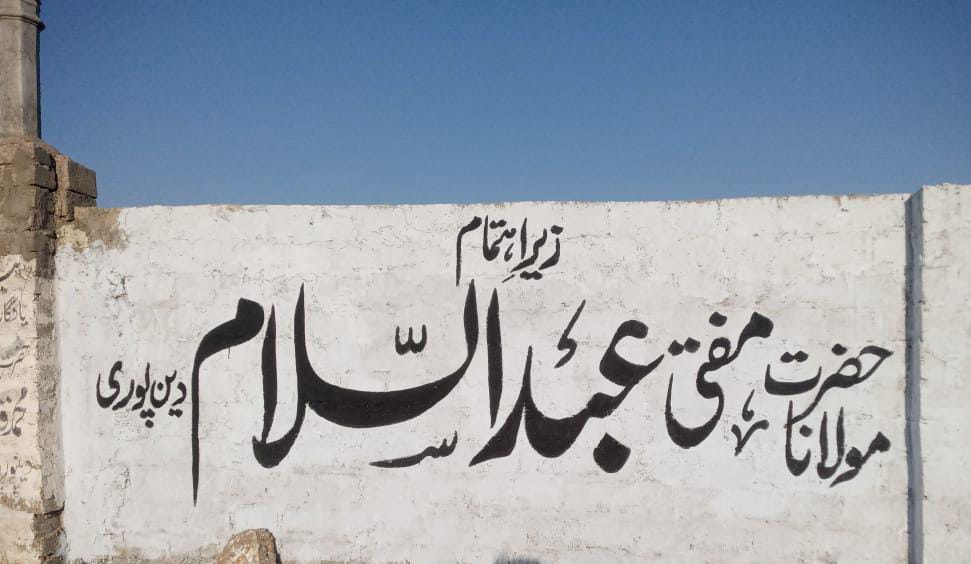 زیرِ اہتمام
حضرت مولانا مفتی عبدالسلام دین پوری
یادگار